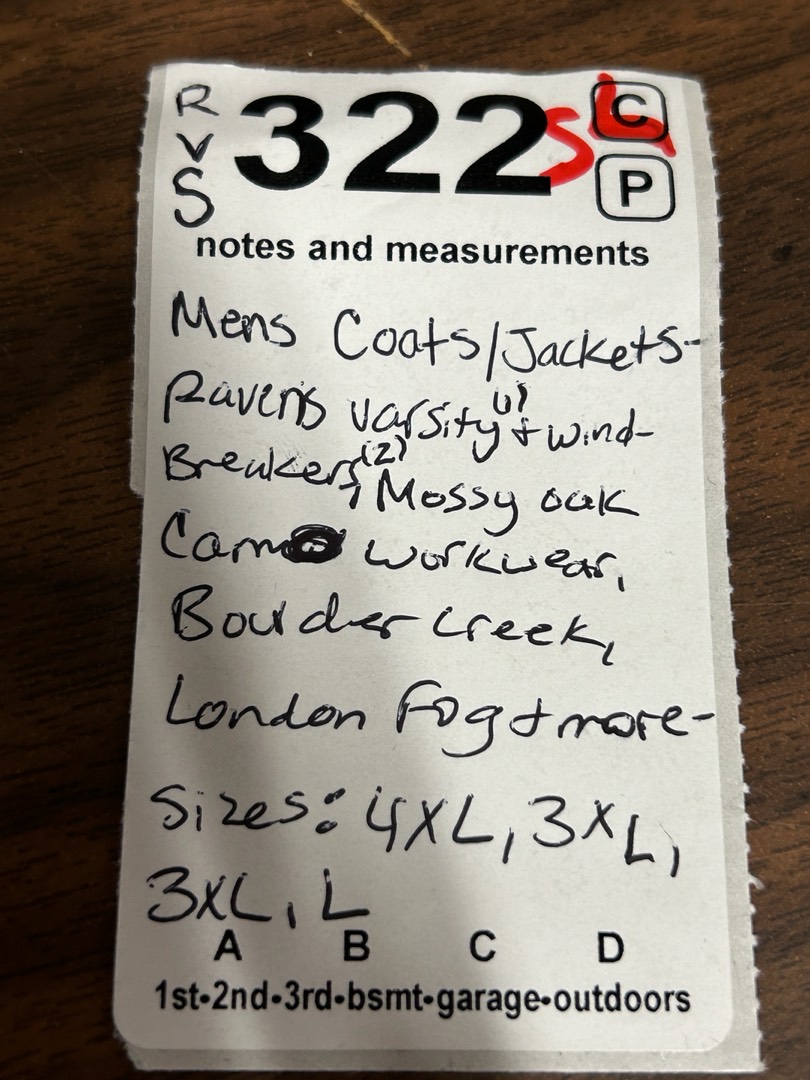 RVS
322 SL
C
P
notes and measurements
Mens Coats/Jackets-
Ravens varsity (1) + wind-
Breakers (2), Mossy oak
Camo workwear,
Boulder Creek,
London Fog + more-
Sizes: 4XL, 3XL,
3XL, L
A B C D
1st•2nd•3rd•bsmt•garage•outdoors